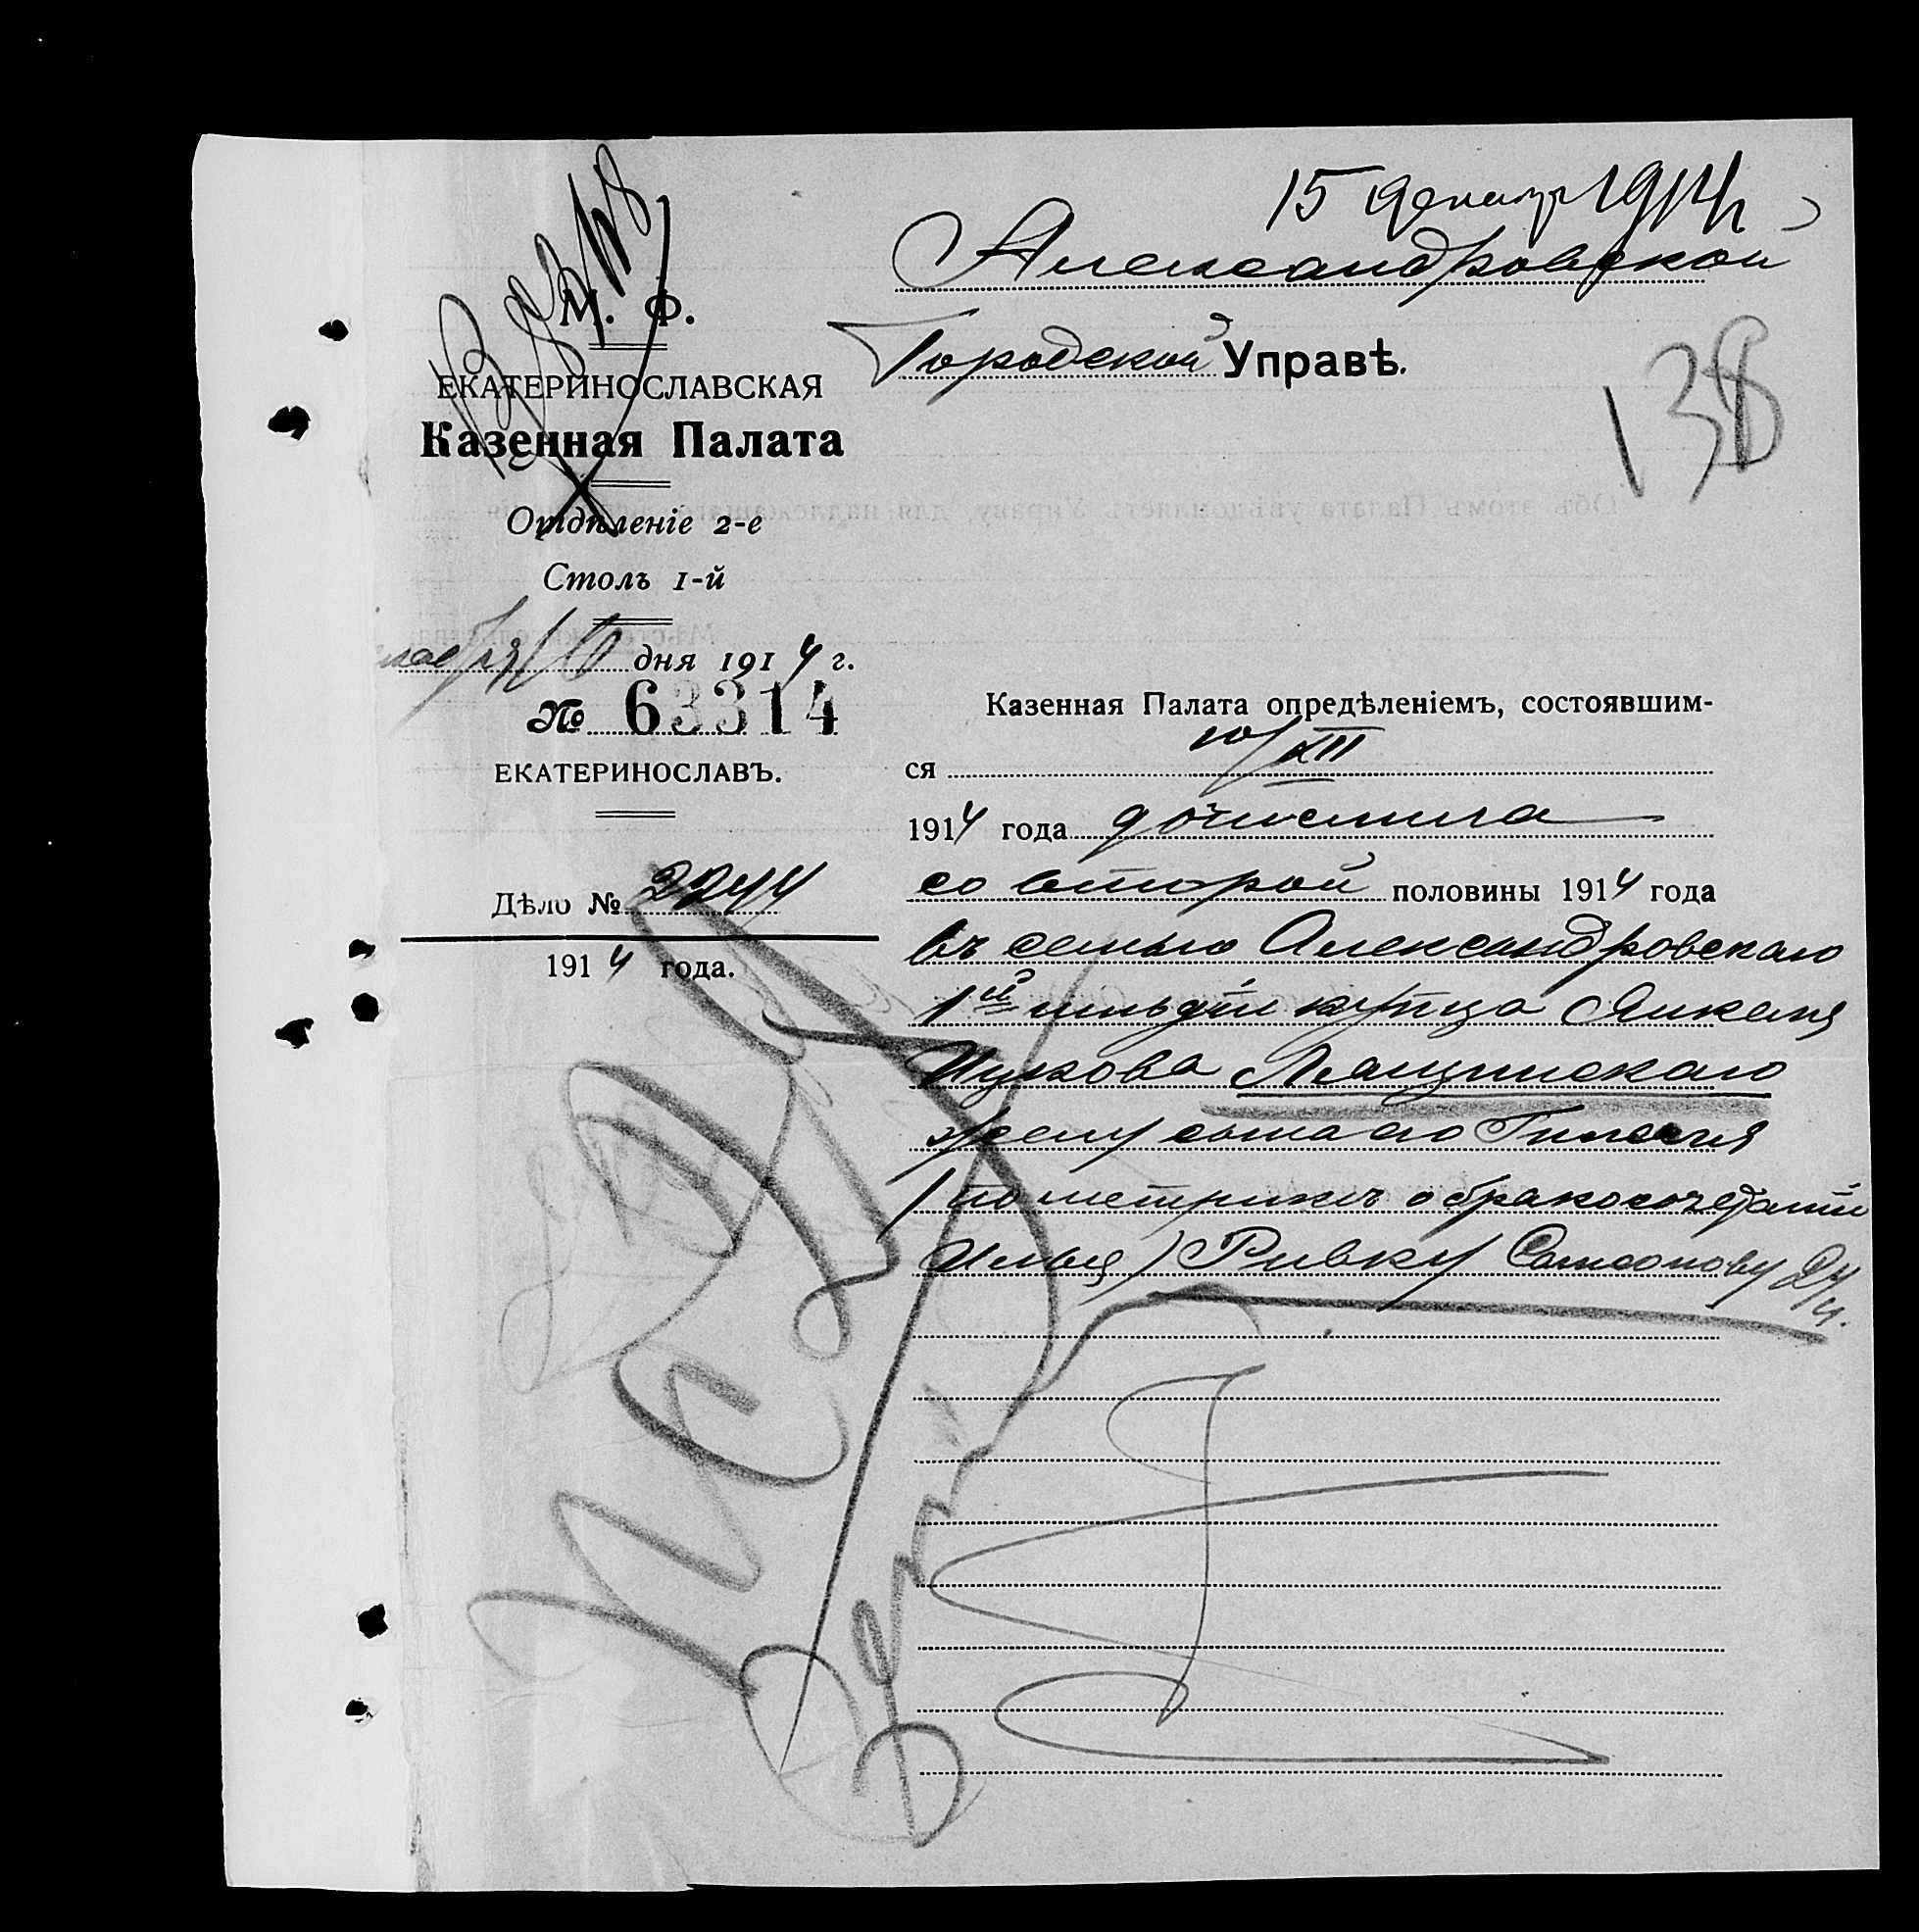 15 декабр 1914 г
Александровской
Городской Управѣ.
138
М. Ф.
ЕКАТЕРИНОСЛАВСКАЯ
Казенная Палата
Отдѣленіе 2-е
Столъ 1-й
10 дня 1914 г.
№ 63314
ЕКАТЕРИНОСЛАВЪ.
Дѣло № 2244
1914 года.
Казенная Палата опредѣленіемъ, состоявшим-
ся 10/XII
1914 года дочислила
со второй половины 1914 года
въ семью Александровскаго
1й гильдіи купца Янкеля
Ицкова Лящинскаго
жену сына его Гилеля
(по метрикѣ о бракосочетаніи
Илья) Ривку Самсонову 24